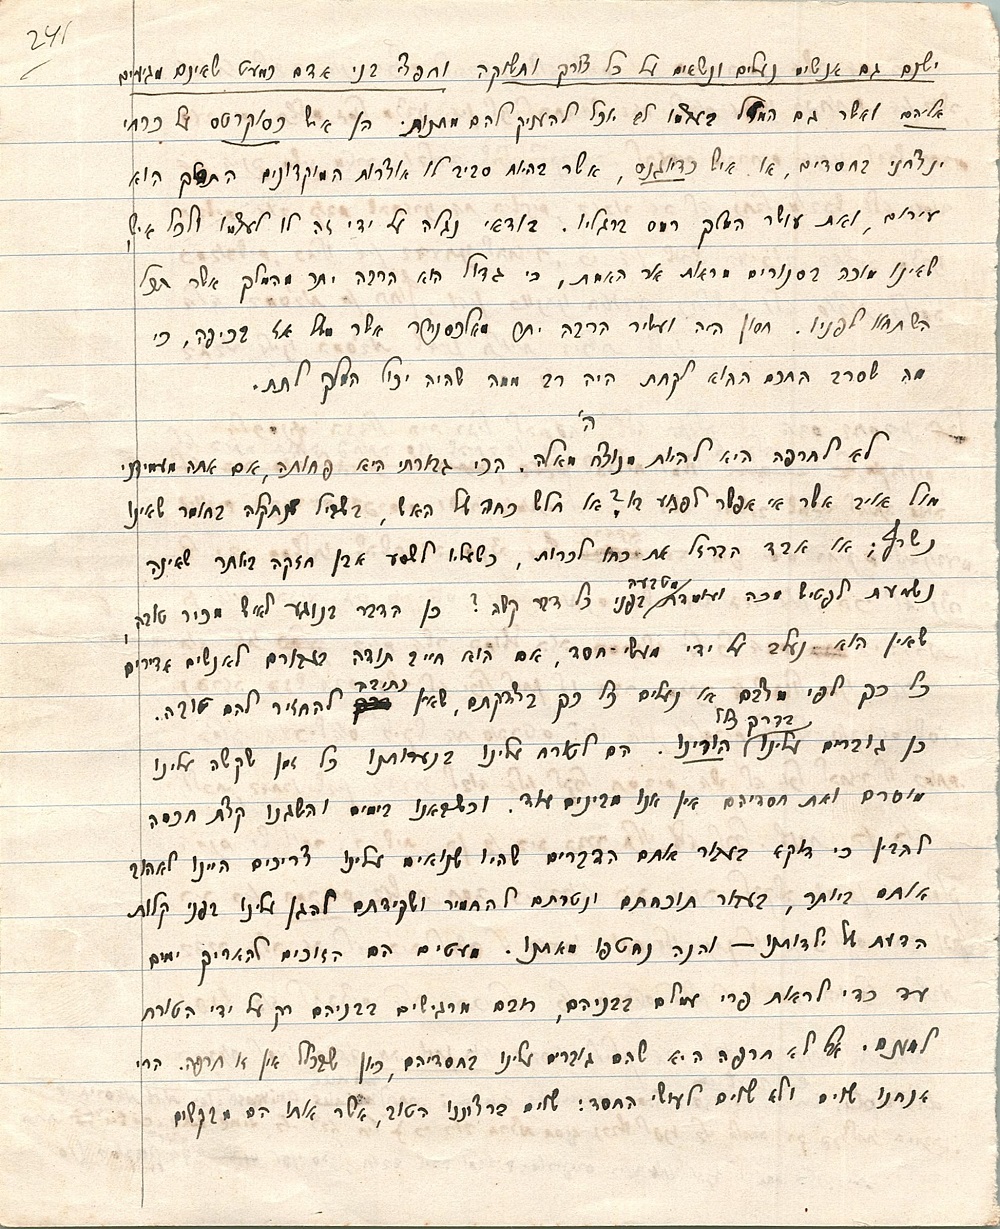 241
ישנם גם אנשים נעלים ונשאים על כל צורך ותשוקה וחפצי בני אדם כמעט שאינם מגיעים
אליהם ואשר גם המזל בעצמו לא יוכל להעניק להם מתנות. הן איש כסוקרטס על כרחי
ינצחני בחסדים, או איש כדיוגנס, אשר בהיות סביב לו אוצרות המוקדונים התהלך הוא
עירום, ואת עושר המלך רמס ברגליו. בודאי נגלה על ידי זה לו לעצמו ולכל איש
שאינו מוכה בסנורים מראות את האמת, כי גדול הוא הרבה יתר מהמלך אשר הכל
השתחוו לפניו. חסון היה ועשיר הרבה יתר מאלכסנדר אשר משל אז בכיפה, כי
מה שסרב החכם ההוא לקחת היה רב ממה שהיה יכול המלך לתת.
ה'
לא לחרפה היא להיות מנוצח מאלה. הכי גבורתי היא פחותה, אם אתה מעמידני
מול אויב אשר אי אפשר לפצוע בו? או חלש כחה של האש, בשביל שנתקלה בחומר שאינו
נשרף; או אבד הברזל את כחו לכרות, כשעליו לשסע אבן חזקה באתר שאינה
נשמעת לפטיש מכה ועומדת מטבעה בפני כל דבר קשה? כן הדבר בנוגע לאיש מכיר טובה,
שאין הוא נעלב על ידי מעשי חסד, אם הוא חייב תודה בעבורם לאנשים אדירים
כל כך לפי מצבם או נעלים כל כך בצדקתם, שאין נתיבה להחזיר להם טובה.
כן גוברים עלינו בדרך כלל הורינו. הם לטורח עלינו בנערותנו כל זמן שקשה עלינו
מוסרם ואת חסדיהם אין אנו מבינים עוד. וכשבאנו בימים והשגנו קצת חכמה
להבין כי דוקא בעבור אותם הדברים שהיו שנואים עלינו צריכים היינו לאהוב
אותם ביותר, בעבור תוכחתם ונטרתם להחמיר ושקידתם להגן עלינו בפני קלות
הדעת של ילדותנו — והנה נחטפו מאתנו. מעטים הם הזוכים להאריך ימים
עד כדי לראות פרי עמלם בבניהם, רובם מרגישים בבניהם רק על ידי הטורח
למענם. אך לא חרפה היא שהם גוברים עלינו בחסדיהם, כיון שבכלל אין זו חרפה. הרי
אנחנו שוים ולא שוים לעושי החסד: שוים ברצוננו הטוב, אשר אותו הם מבקשים